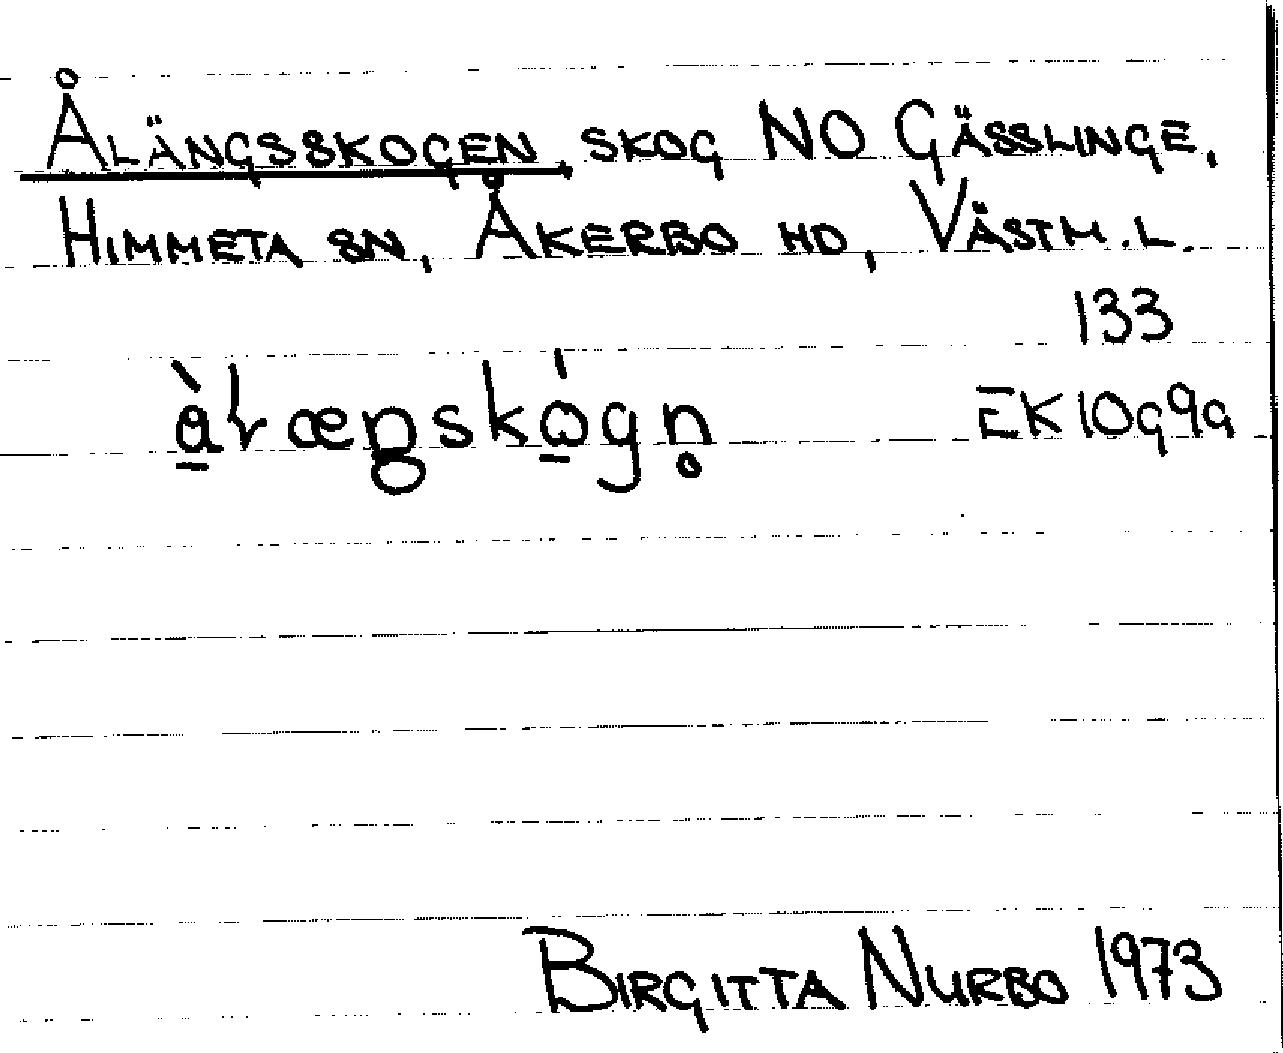 ÅLÄNGSSKOGEN, SKOG NO GÄSSLINGE,
HIMMETA SN, ÅKERBO HD, VÄSTM.L.
133
EK10g9g
BIRGITTA NURBO 1973